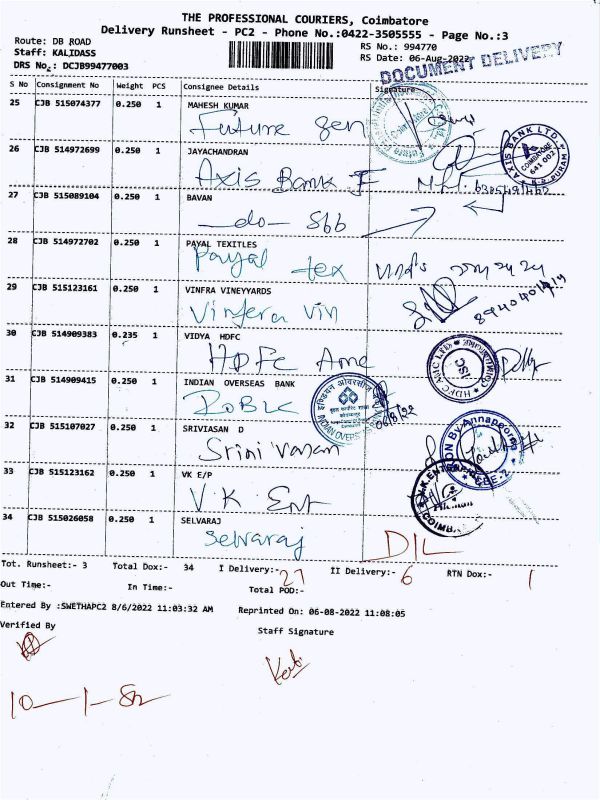 THE PROFESSIONAL COURIERS, Coimbatore
Delivery Runsheet - PC2 - Phone No.:0422-3505555 - Page No.:3
Route: DB ROAD
Staff: KALIDASS
DRS No.: DCJB99477003
RS No.: 994770
RS Date: 06-Aug-2022
DOCUMENT DELIVERY
S No Consignment No Weight PCS Consignee Details Signature
25 CJB 515074377 0.250 1 MAHESH KUMAR
Future Gen
26 CJB 514972699 0.250 1 JAYACHANDRAN
Axis Bank F
AXIS BANK LTD. COIMBATORE 641 002 R.S. PURAM
27 CJB 515089104 0.250 1 BAVAN
do Sbb
28 CJB 514972702 0.250 1 PAYAL TEXITLES
Payal tex
29 CJB 515123161 0.250 1 VINFRA VINEYYARDS
Vinfera Vin
30 CJB 514909383 0.235 1 VIDYA HDFC
HDFC Amc
HDFC AMC LTD ISC
31 CJB 514909415 0.250 1 INDIAN OVERSEAS BANK
IOBLC
इण्डियन ओवरसीज
INDIAN OVERSEAS
32 CJB 515107027 0.250 1 SRIVIASAN D
Srini vasan
By Annapoorna
33 CJB 515123162 0.250 1 VK E/P
V.K Ent
34 CJB 515026058 0.250 1 SELVARAJ
Selvaraj
D/L
Tot. Runsheet:- 3 Total Dox:- 34 I Delivery:- 27 II Delivery:- 6 RTN Dox:- 1
Out Time:- In Time:- Total POD:-
Entered By :SWETHAPC2 8/6/2022 11:03:32 AM Reprinted On: 06-08-2022 11:08:05
Verified By
Staff Signature